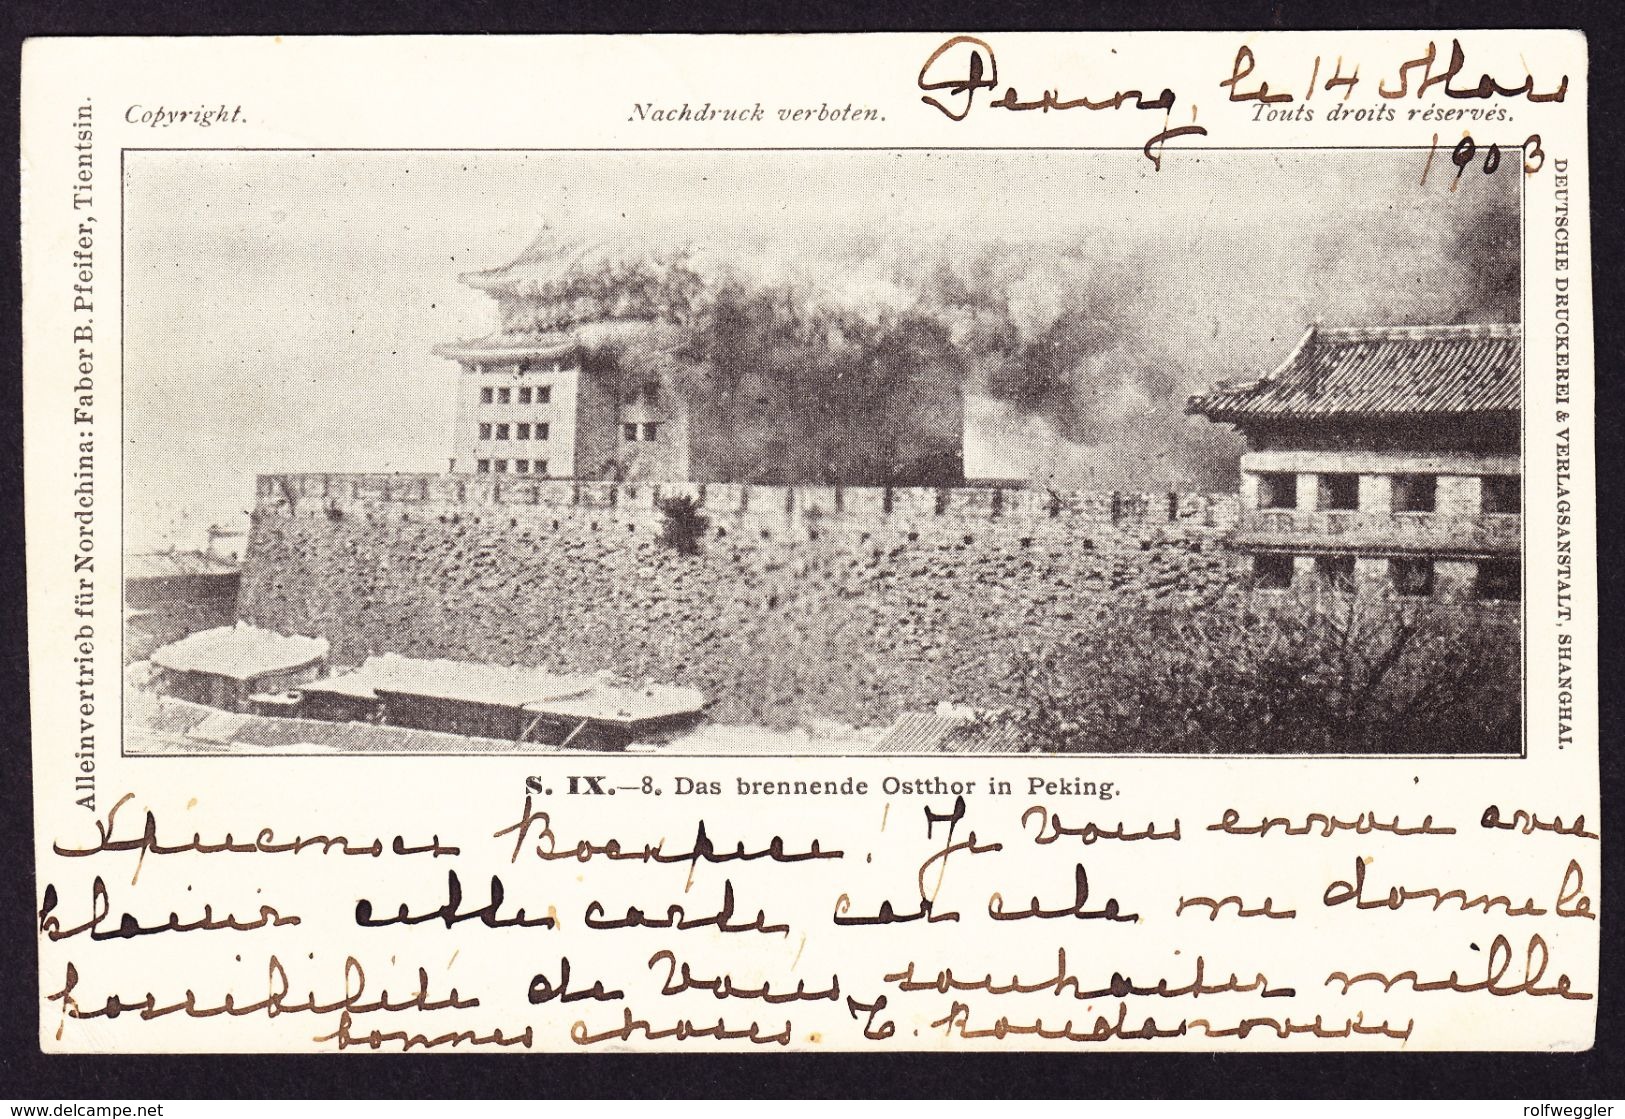 Peking, le 14 Mars
1903
Copyright.
Nachdruck verboten.
Touts droits réservés.
Alleinvertrieb für Nordchina: Faber B. Pfeifer, Tientsin.
DEUTSCHE DRUCKEREI & VERLAGSANSTALT, SHANGHAI.
S. IX.—8. Das brennende Ostthor in Peking.
Христосъ Воскресе! Je vous envoie avec
plaisir cette carte, car cela me donne la
possibilité de vous souhaiter mille
bonnes choses.
delcampe.net
rolfweggler